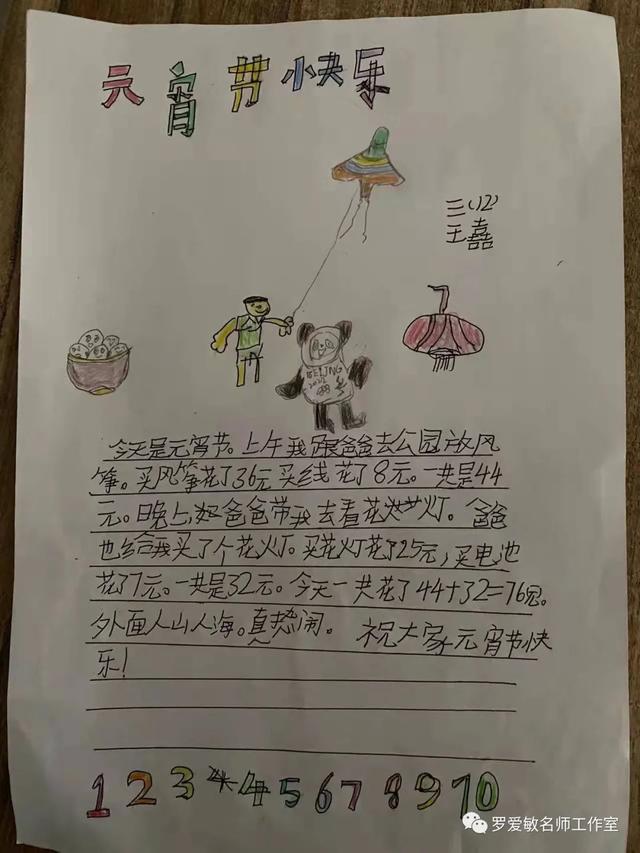 元宵节快乐
三(12)
王嘉
BEIJING
2022
今天是元宵节。上午我跟爸爸去公园放风
筝。买风筝花了36元买线花了8元。一共是44
元。晚上,爸爸带我去看花灯。爸爸
也给我买了个花灯。买花灯花了25元,买电池
花了7元。一共是32元。今天一共花了44+32=76元。
外面人山人海。真热闹。祝大家元宵节快
乐!
1 2 3 4 5 6 7 8 9 10
罗爱敏名师工作室